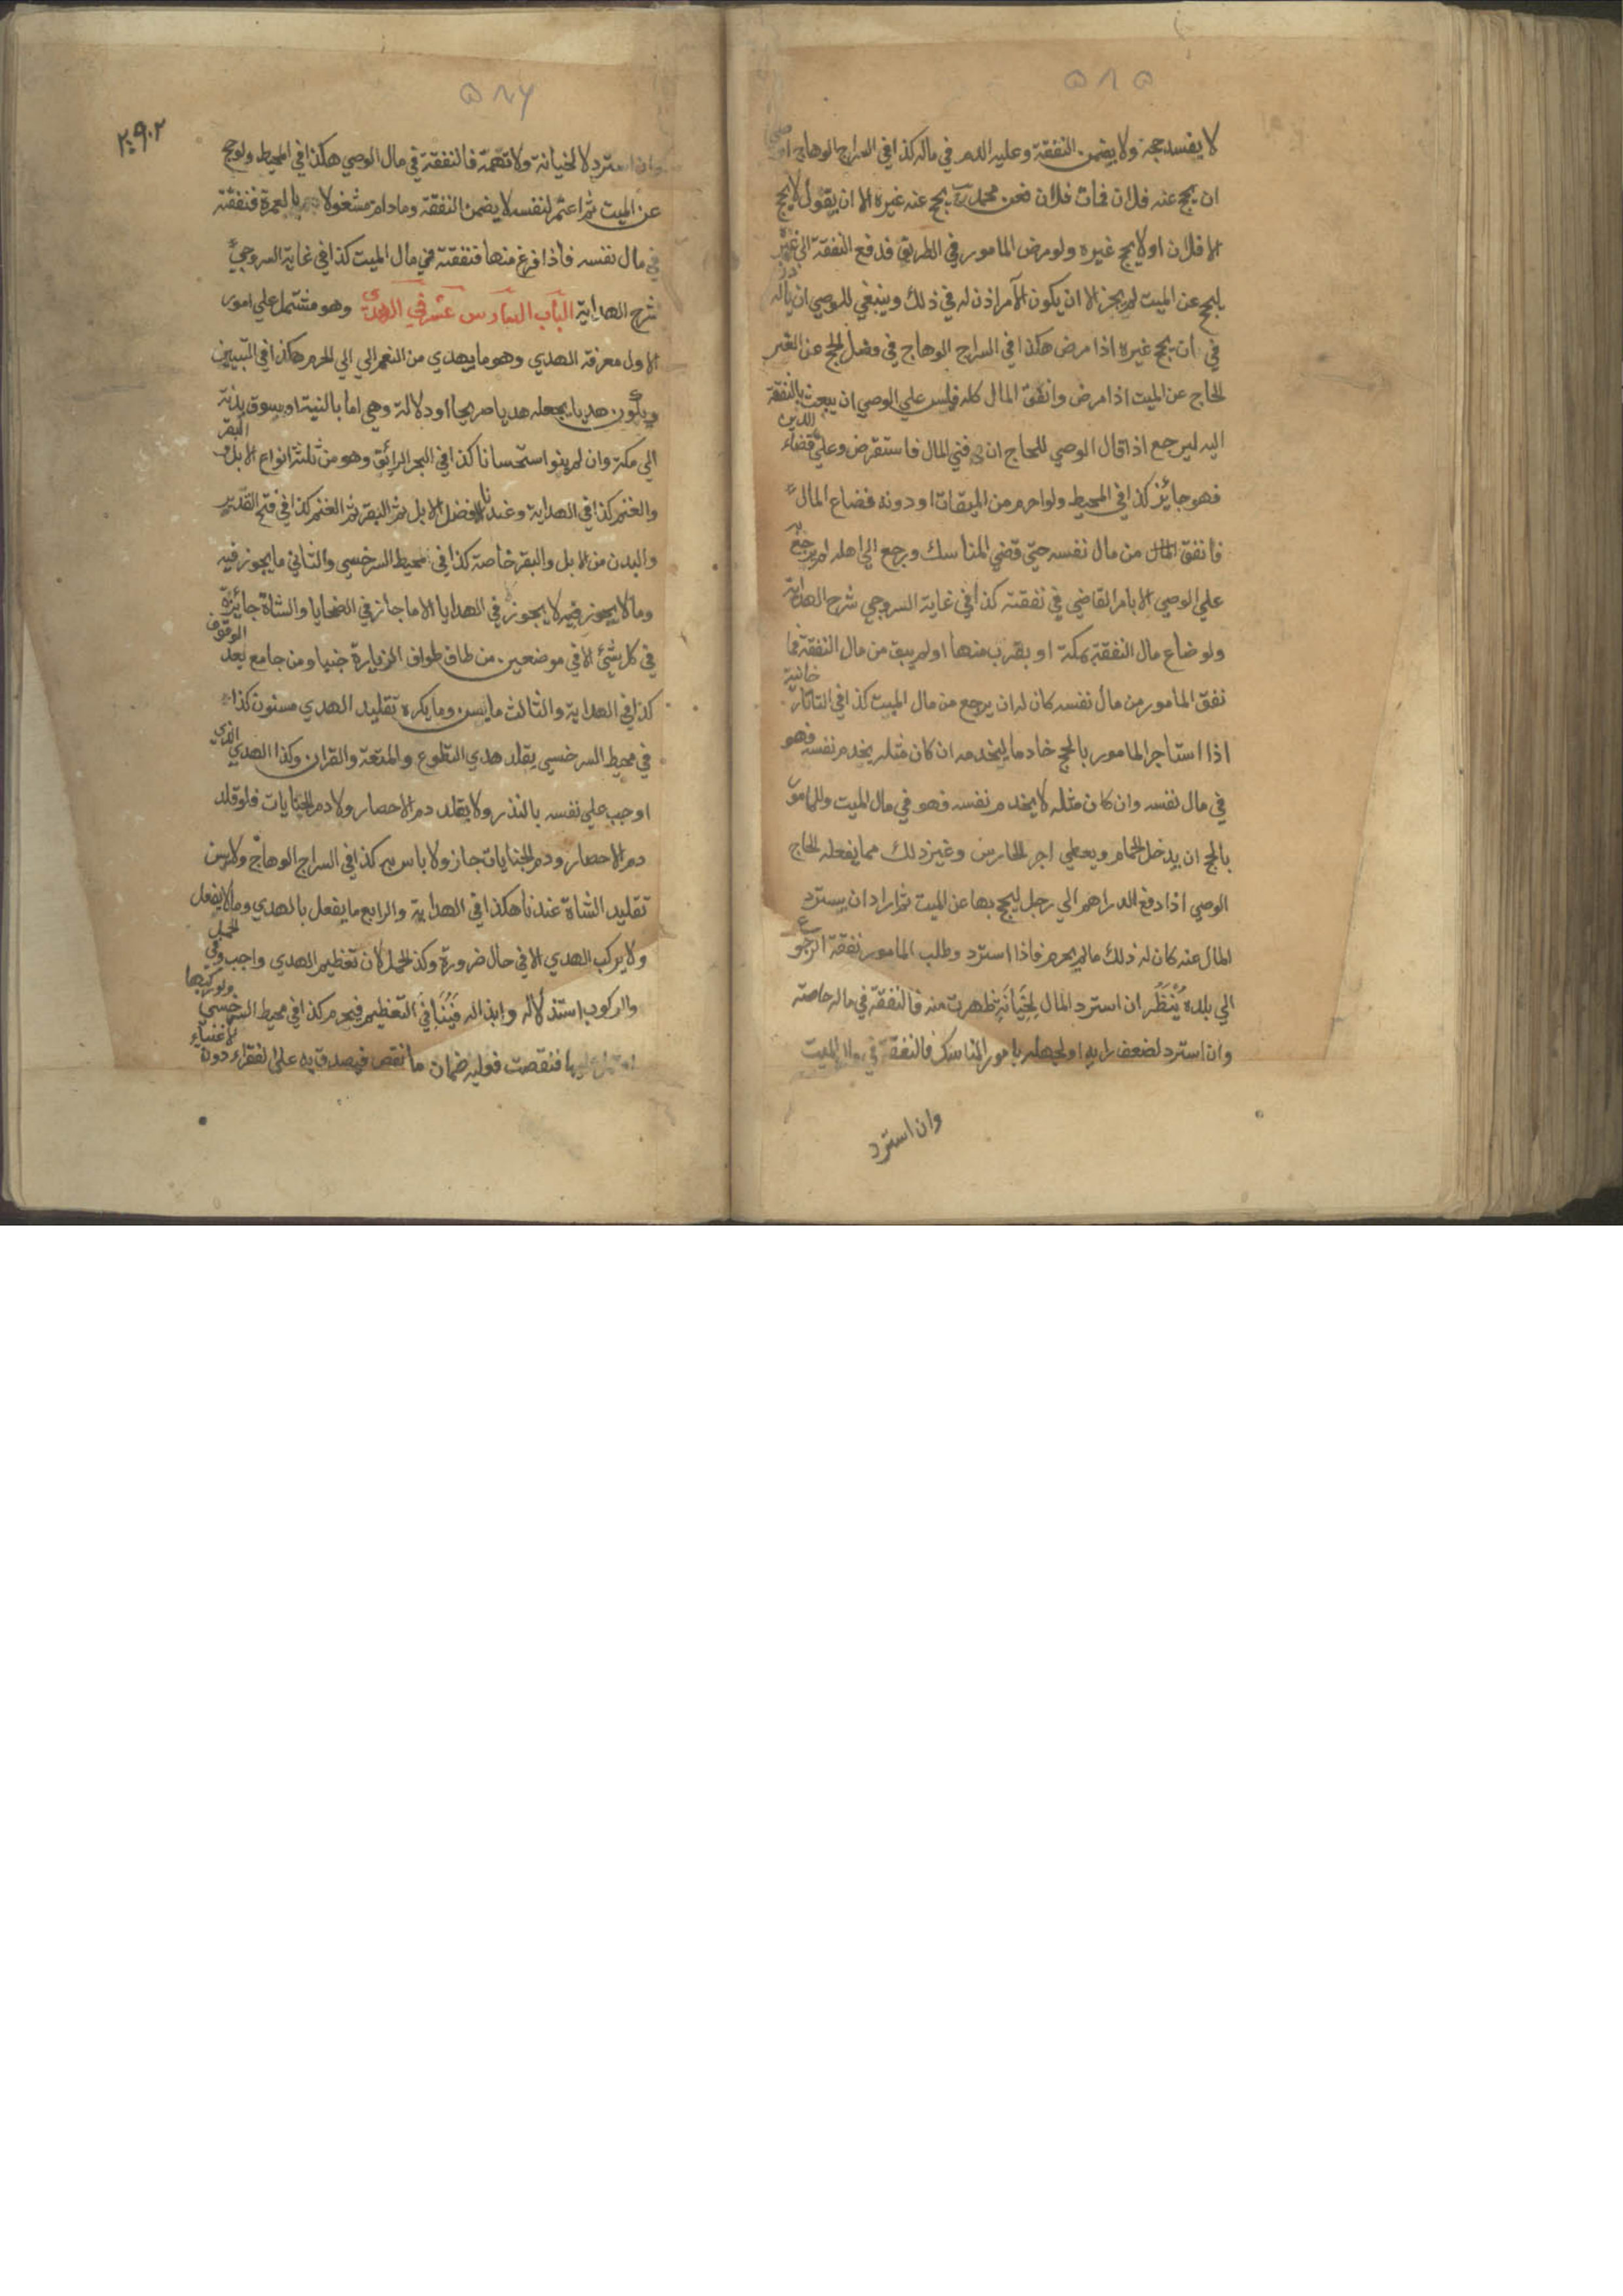 ٥٨٥
لا يفسد حجه ولا يضمن النفقة وعليه الدم في ماله كذا في السراج الوهاج اوصى
ان يحج عنه فلان فمات فلان فعن محمد رح يحج عنه غيره الا ان يقول لا يحج
الا فلان او لا يحج غيره ولو مرض المامور في الطريق فدفع النفقة الى غيره
ليحج عن الميت لم يجز الا ان يكون الآمر اذن له في ذلك وينبغي للوصي ان ياذن له
في ان يحج غيره اذا مرض هكذا في السراج الوهاج في فصل الحج عن الغير
الحاج عن الميت اذا مرض وانفق المال كله فليس علي الوصي ان يبعث بالنفقة
اليه ليرجع اذا قال الوصي للحاج ان فني المال فاستقرض وعلي قضاء الدين
فهو جائز كذا في المحيط ولو احرم من الميقات او دونه فضاع المال
فانفق من مال نفسه حتي قضي المناسك ورجع الي اهله لم يرجع به
علي الوصي الا بامر القاضي في نفقته كذا في غاية السروجي شرح الهداية
ولو ضاع مال النفقة بمكة او بقرب منها او لم يبق من مال النفقة فا
نفق المامور من مال نفسه كان له ان يرجع من مال الميت كذا في التاتار خانية
اذا استاجر المامور بالحج خادما ليخدمه ان كان مثله يخدم نفسه فهو
في مال نفسه وان كان مثله لا يخدم نفسه فهو في مال الميت وللمامور
بالحج ان يدخل الحمام ويعطي اجر الحارس وغير ذلك مما يفعله الحاج
الوصي اذا دفع الدراهم الي رجل ليحج بها عن الميت ثم اراد ان يسترد
المال عنه كان له ذلك ما لم يحرم فاذا استرد وطلب المامور نفقة الرجوع
الي بلده يُنْظَر ان استرد المال لِخِيَانَةٍ ظهرت منه فالنفقة في ماله خاصته
وان استرد لضعف رايه او لجهله بامور المناسك فالنفقة في مال الميت
وان استرد
٥٨٦
٢٠٩٠٢
وان استرد لا لخيانة ولا تهمة فالنفقة في مال الوصي هكذا في المحيط ولو حج
عن الميت ثم اعتمر لنفسه لا يضمن النفقة وما دام مشغولا بالعمرة فنفقته
في مال نفسه فاذا فرغ منها فنفقته في مال الميت كذا في غاية السروجي
شرح الهداية الباب السادس عشر في الهدي وهو مشتمل علي امور
الاول معرفة الهدي وهو ما يهدي من النعم الي الي الحرم هكذا في التبيين
ويكون هديا بجعله هديا صريحا او دلالة وهي اما بالنية او بسوق بدنة
الي مكة وان لم ينو استحسانا كذا في البحر الرائق وهو من ثلثة انواع الابل والبقر
والغنم كذا في الهداية وعندنا الافضل الابل ثم البقر ثم الغنم كذا في فتح القدير
والبدن من الابل والبقر خاصة كذا في محيط السرخسي والثاني ما يجوز فيه
وما لا يجوز فيه لا يجوز في الهدايا الا ما جاز في الضحايا والشاة جائزة
في كل شئ الا في موضعين من طاف طواف الزيارة جنبا ومن جامع بعد الوقوف
كذا في الهداية والثالث ما يسن وما يكره تقليد الهدي مسنون كذا
في محيط السرخسي يقلد هدي التطوع والمتعة والقران وكذا الهدي الذي
اوجب علي نفسه بالنذر ولا يقلد دم الاحصار ولا دم الجنايات فلو قلد
دم الاحصار ودم الجنايات جاز ولا باس به كذا في السراج الوهاج ولا يسن
تقليد الشاة عندنا هكذا في الهداية والرابع ما يفعل بالهدي وما لا يفعل
ولا يركب الهدي الا في حال ضرورة وكذا الحمل لان تعظيم الهدي واجب وفي الحمل
والركوب استذلاله وابذاله فَيُنَافِي التعظيم فيحرم كذا في محيط السرخسي ولو ركبها
او حمل عليها فنقصت فعليه ضمان ما نقص فيصدق به علي الفقراء دون الاغنياء